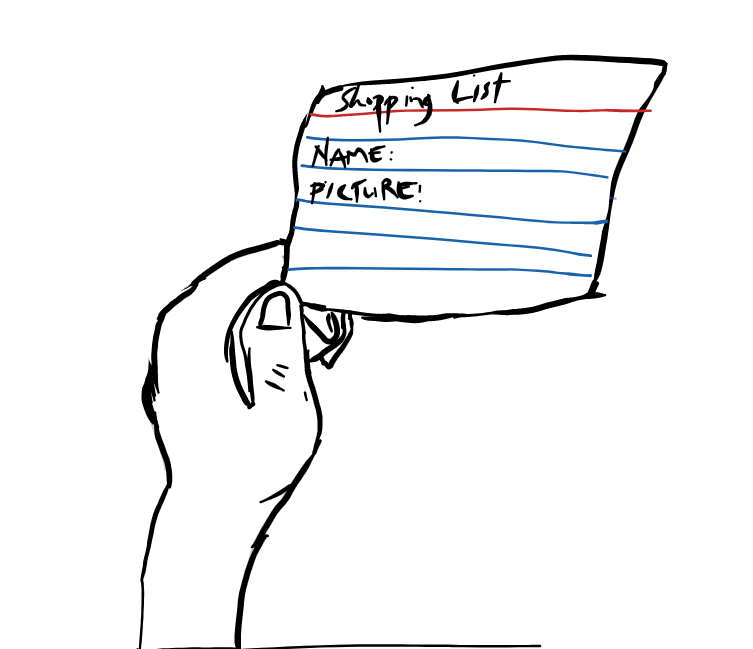 Shopping List
NAME:
PICTURE!